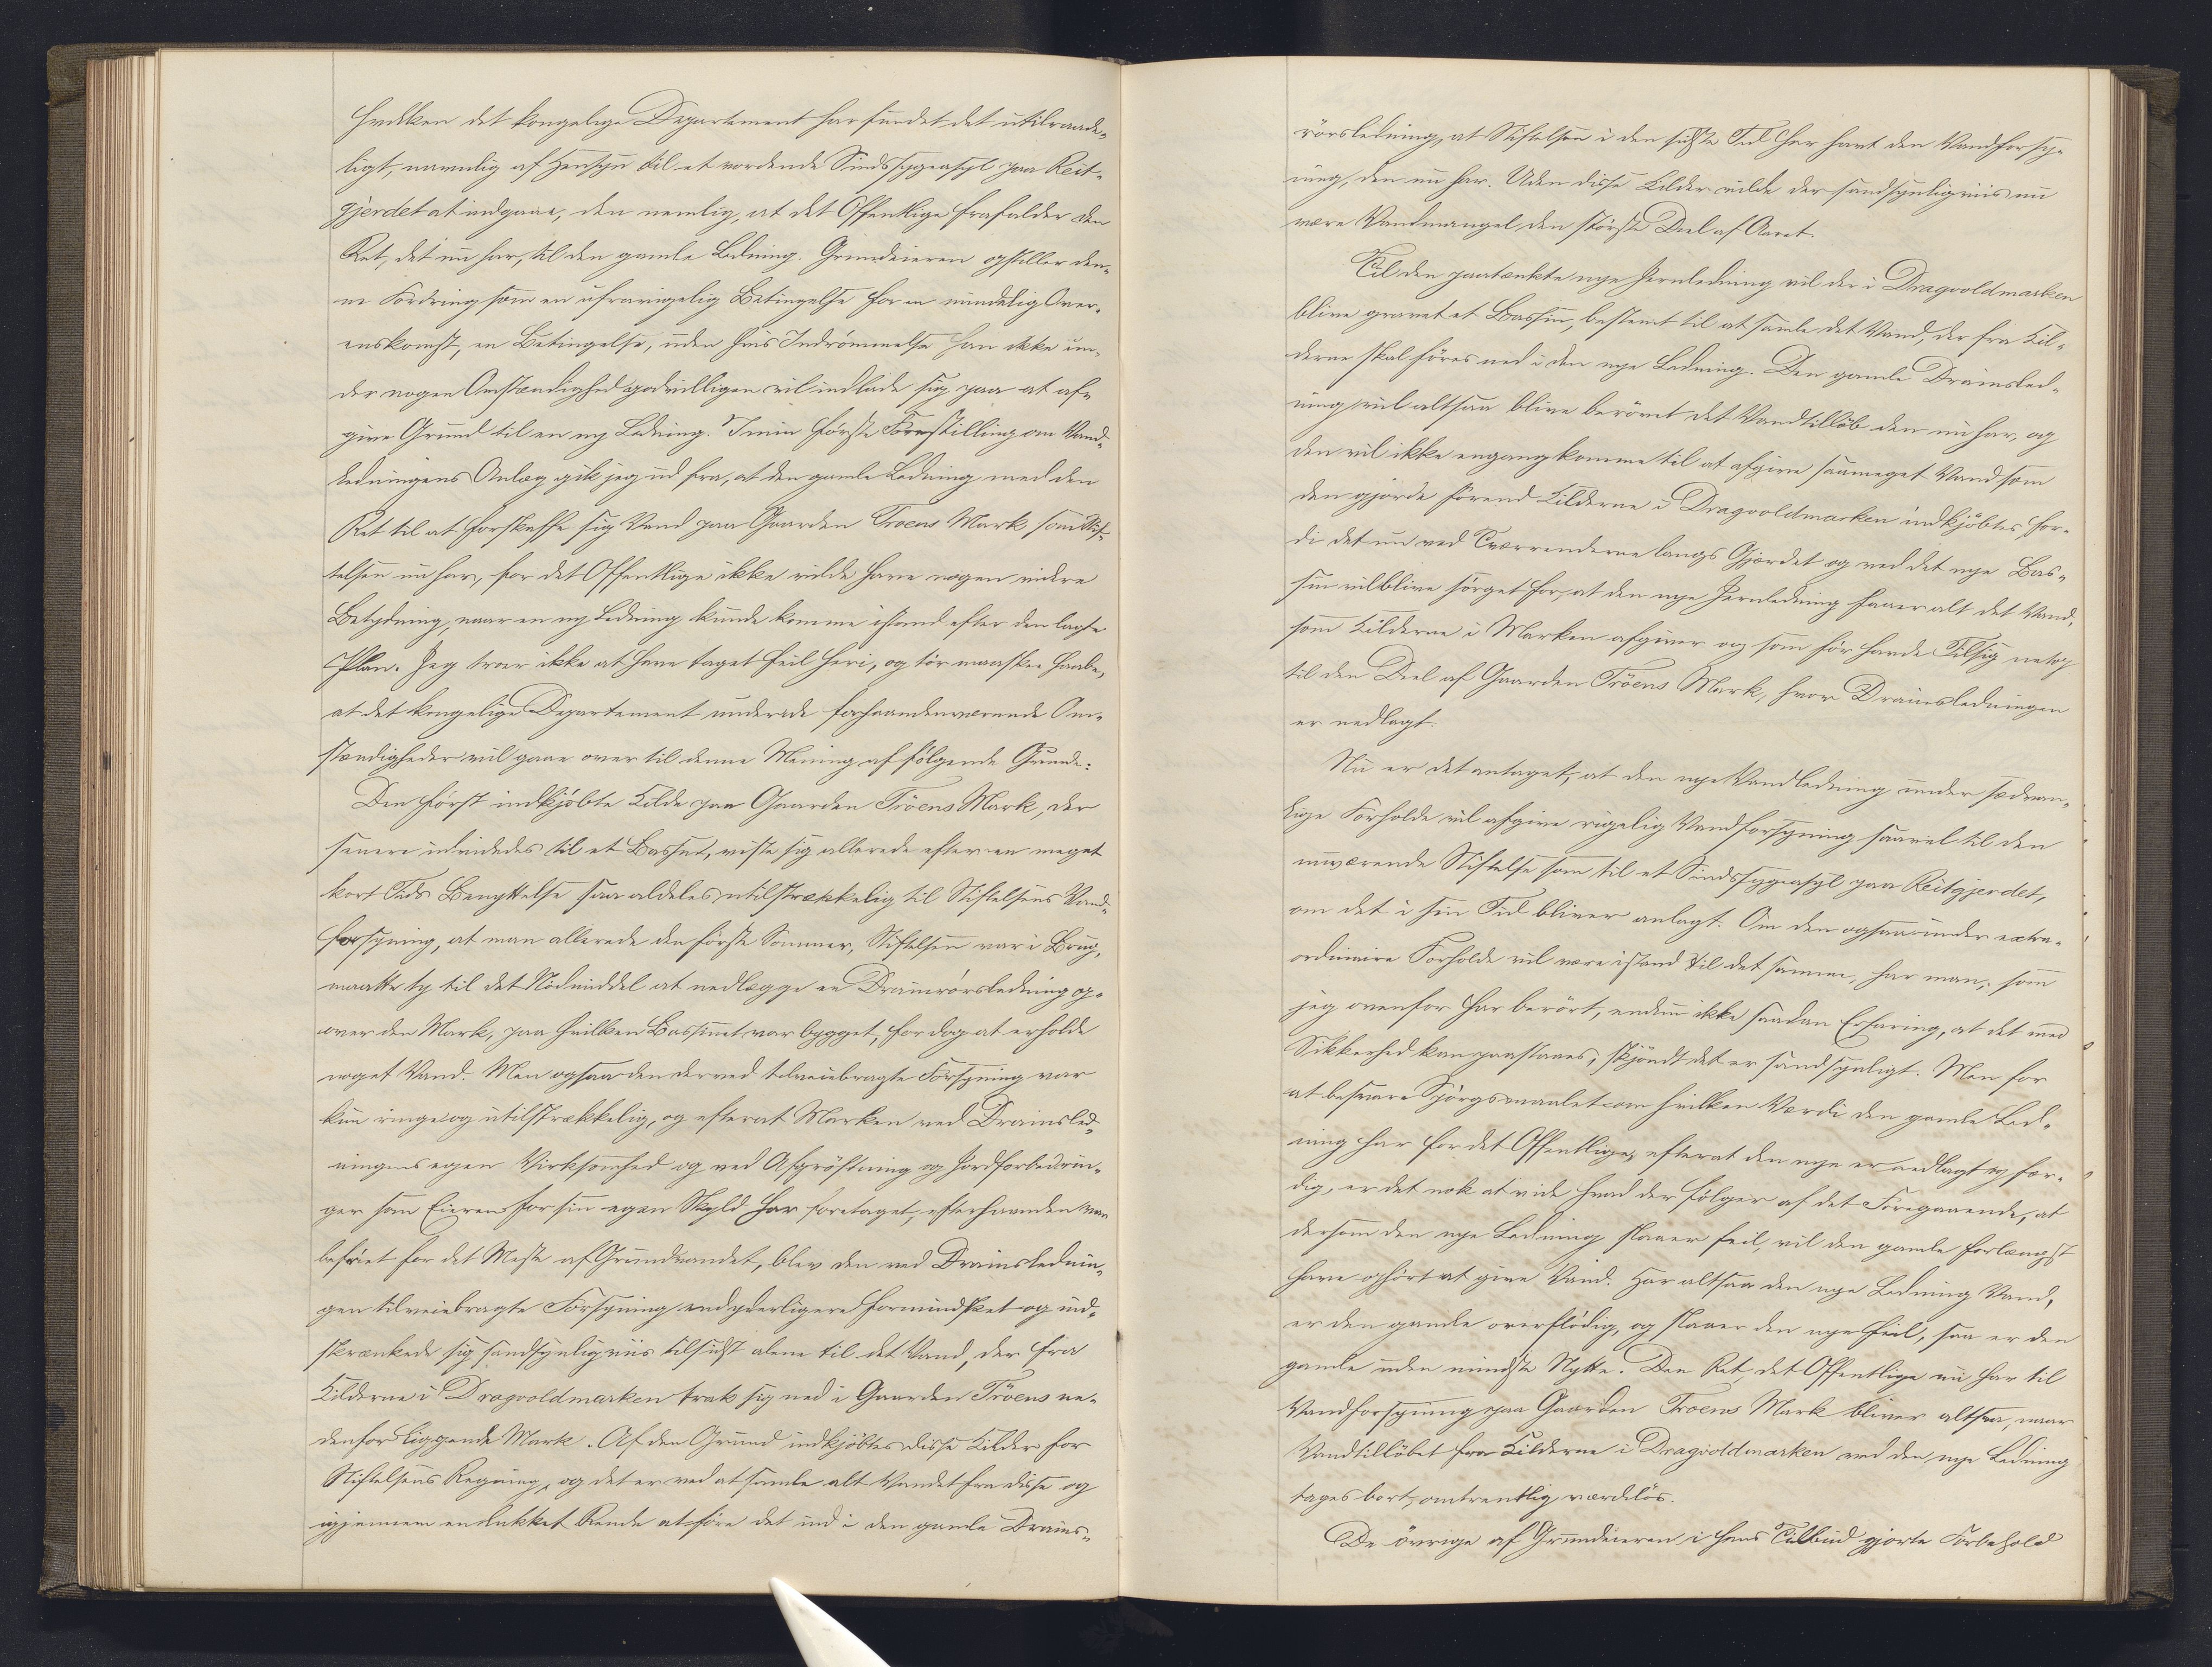 hvilken det kongelige Departement har fundet det utilraade-
ligt, navnlig af Hensyn til et vordende Sindssygeasyl paa Reit-
gjerdet at indgaae, den nemlig, at det Offentlige frafalder den
Ret, det nu har, til den gamle Ledning. Grundeieren opstiller den-
ne Fordring som en ufravigelig Betingelse for en mindelig Over-
enskomst, en Betingelse, uden hvis Indrömmelse han ikke un-
der nogen Omstændighed godvilligen vil indlade sig paa at af-
give Grund til en ny Ledning. I min förste Forestilling om Vand-
ledningens Anlæg gik jeg ud fra, at den gamle Ledning med den
Ret til at forskaffe sig Vand paa Gaarden Troens Mark, som Stif-
telsen nu har, for det Offentlige ikke vilde have nogen videre
Betydning, naar en ny Ledning kunde komme istand efter den lagte
Plan. Jeg troer ikke at have taget feil heri, og tör maaskee haabe,
at det kongelige Departement under de forhaandenværende Om-
stændigheder vil gaae over til denne Mening af fölgende Grunde:
Den först indkjöbte Kilde paa Gaarden Tröens Mark, der
senere udvidedes til et Bassin, viste sig allerede efter en meget
kort Tids Benyttelse saa aldeles utilstrækkelig til Stiftelsens Vand-
forsyning, at man allerede den förste Sommer, Stiftelsen var i Brug,
maatte ty til det Nödmiddel at nedlægge en Drainrörsledning op-
over den Mark, paa hvilken Bassinet var bygget, for dog at erholde
noget Vand. Men ogsaa den derved tilveiebragte Forsyning var
kun ringe og utilstrækkelig, og efterat Marken ved Drainsled-
ningens egen Virksomhed og ved Afgröftning og Jordforbedrin-
ger som Eieren for sin egen Skyld har foretaget, efterhaanden var
befriet for det Meste af Grundvandet, blev den ved Drainslednin-
gen tilveiebragte Forsyning end yderligere formindsket og ind-
skrænkede sig sandsynligviis tilsidst alene til det Vand, der fra
Kilderne i Dragvoldmarken trak sig ned i Gaarden Tröens ne-
denfor liggende Mark. Af den Grund indkjöbtes disse Kilder for
Stiftelsens Regning, og det er ved at samle alt Vandet fra disse og
igjennem en lukket Rende at före det ind i den gamle Drains-
rörsledning, at Stiftelsen i den sidste Tid har havt den Vandforsy-
ning, den nu har. Uden disse Kilder vilde der sandsynligviis nu
være Vandmangel den störste Deel af Aaret.
Til den paatænkte nye Jernledning vil der i Dragvoldmarken
blive gravet et Bassin, bestemt til at samle det Vand, der fra Kil-
derne skal föres ned i den nye Ledning. Den gamle Drainsled-
ning vil altsaa blive berövet det Vandtillöb den nu har, og
den vil ikke engang komme til at afgive saameget Vand som
den gjorde förend Kilderne i Dragvoldmarken indkjöbtes for-
di det nu ved Tværrenderne langs Gjærdet og ved det nye Bas-
sin vil blive sörget for, at den nye Jernledning faaer alt det Vand,
som Kilderne i Marken afgiver og som för havde Tilsig netop
til den Deel af Gaarden Tröens Mark, hvor Drainsledningen
er nedlagt.
Nu er det antaget, at den nye Vandledning under sædvan-
lige Forholde vil afgive rigelig Vandforsyning saavel til den
nuværende Stiftelse som til et Sindssygeasyl paa Reitgjerdet,
om det i sin Tid bliver anlagt. Om den ogsaa under extra-
ordinaire Forholde vil være istand til det samme, har man, som
jeg ovenfor har berört, endnu ikke saadan Erfaring, at det med
Sikkerhed kan paastaaes, skjöndt det er sandsynligt. Men for
at besvare Spörgsmaalet om hvilken Værdi den gamle Led-
ning har for det Offentlige, efterat den nye er nedlagt og fær-
dig, er det nok at vide hvad der fölger af det Foregaaende, at
dersom den nye Ledning slaaer feil, vil den gamle forlængst
have ophört at give Vand. Har altsaa den nye Ledning Vand,
er den gamle overflödig, og slaaer den nye feil, saa er den
gamle uden mindste Nytte. Den Ret, det Offentlige nu har til
Vandforsyning paa Gaarden Troens Mark bliver altsaa, naar
Vandtillöbet fra Kilderne i Dragvoldmarken ved den nye Ledning
tages bort, omtrentlig værdilös.
De övrige af Grundeieren i hans Tilbud gjorte Forbehold